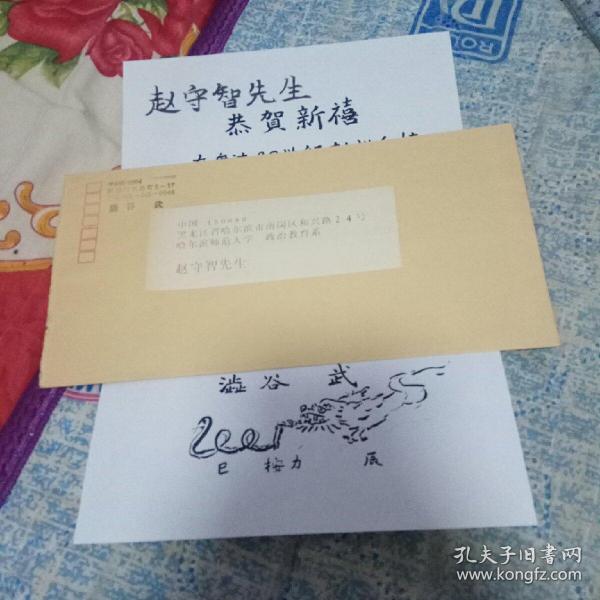 赵守智先生
恭賀新禧
澁谷 武
中国 150080
黑龙江省哈尔滨市南岗区和兴路24号
哈尔滨师范大学 政治教育系
赵守智先生
澁谷 武
巳 接力 辰
孔夫子旧书网
www.kongfz.com